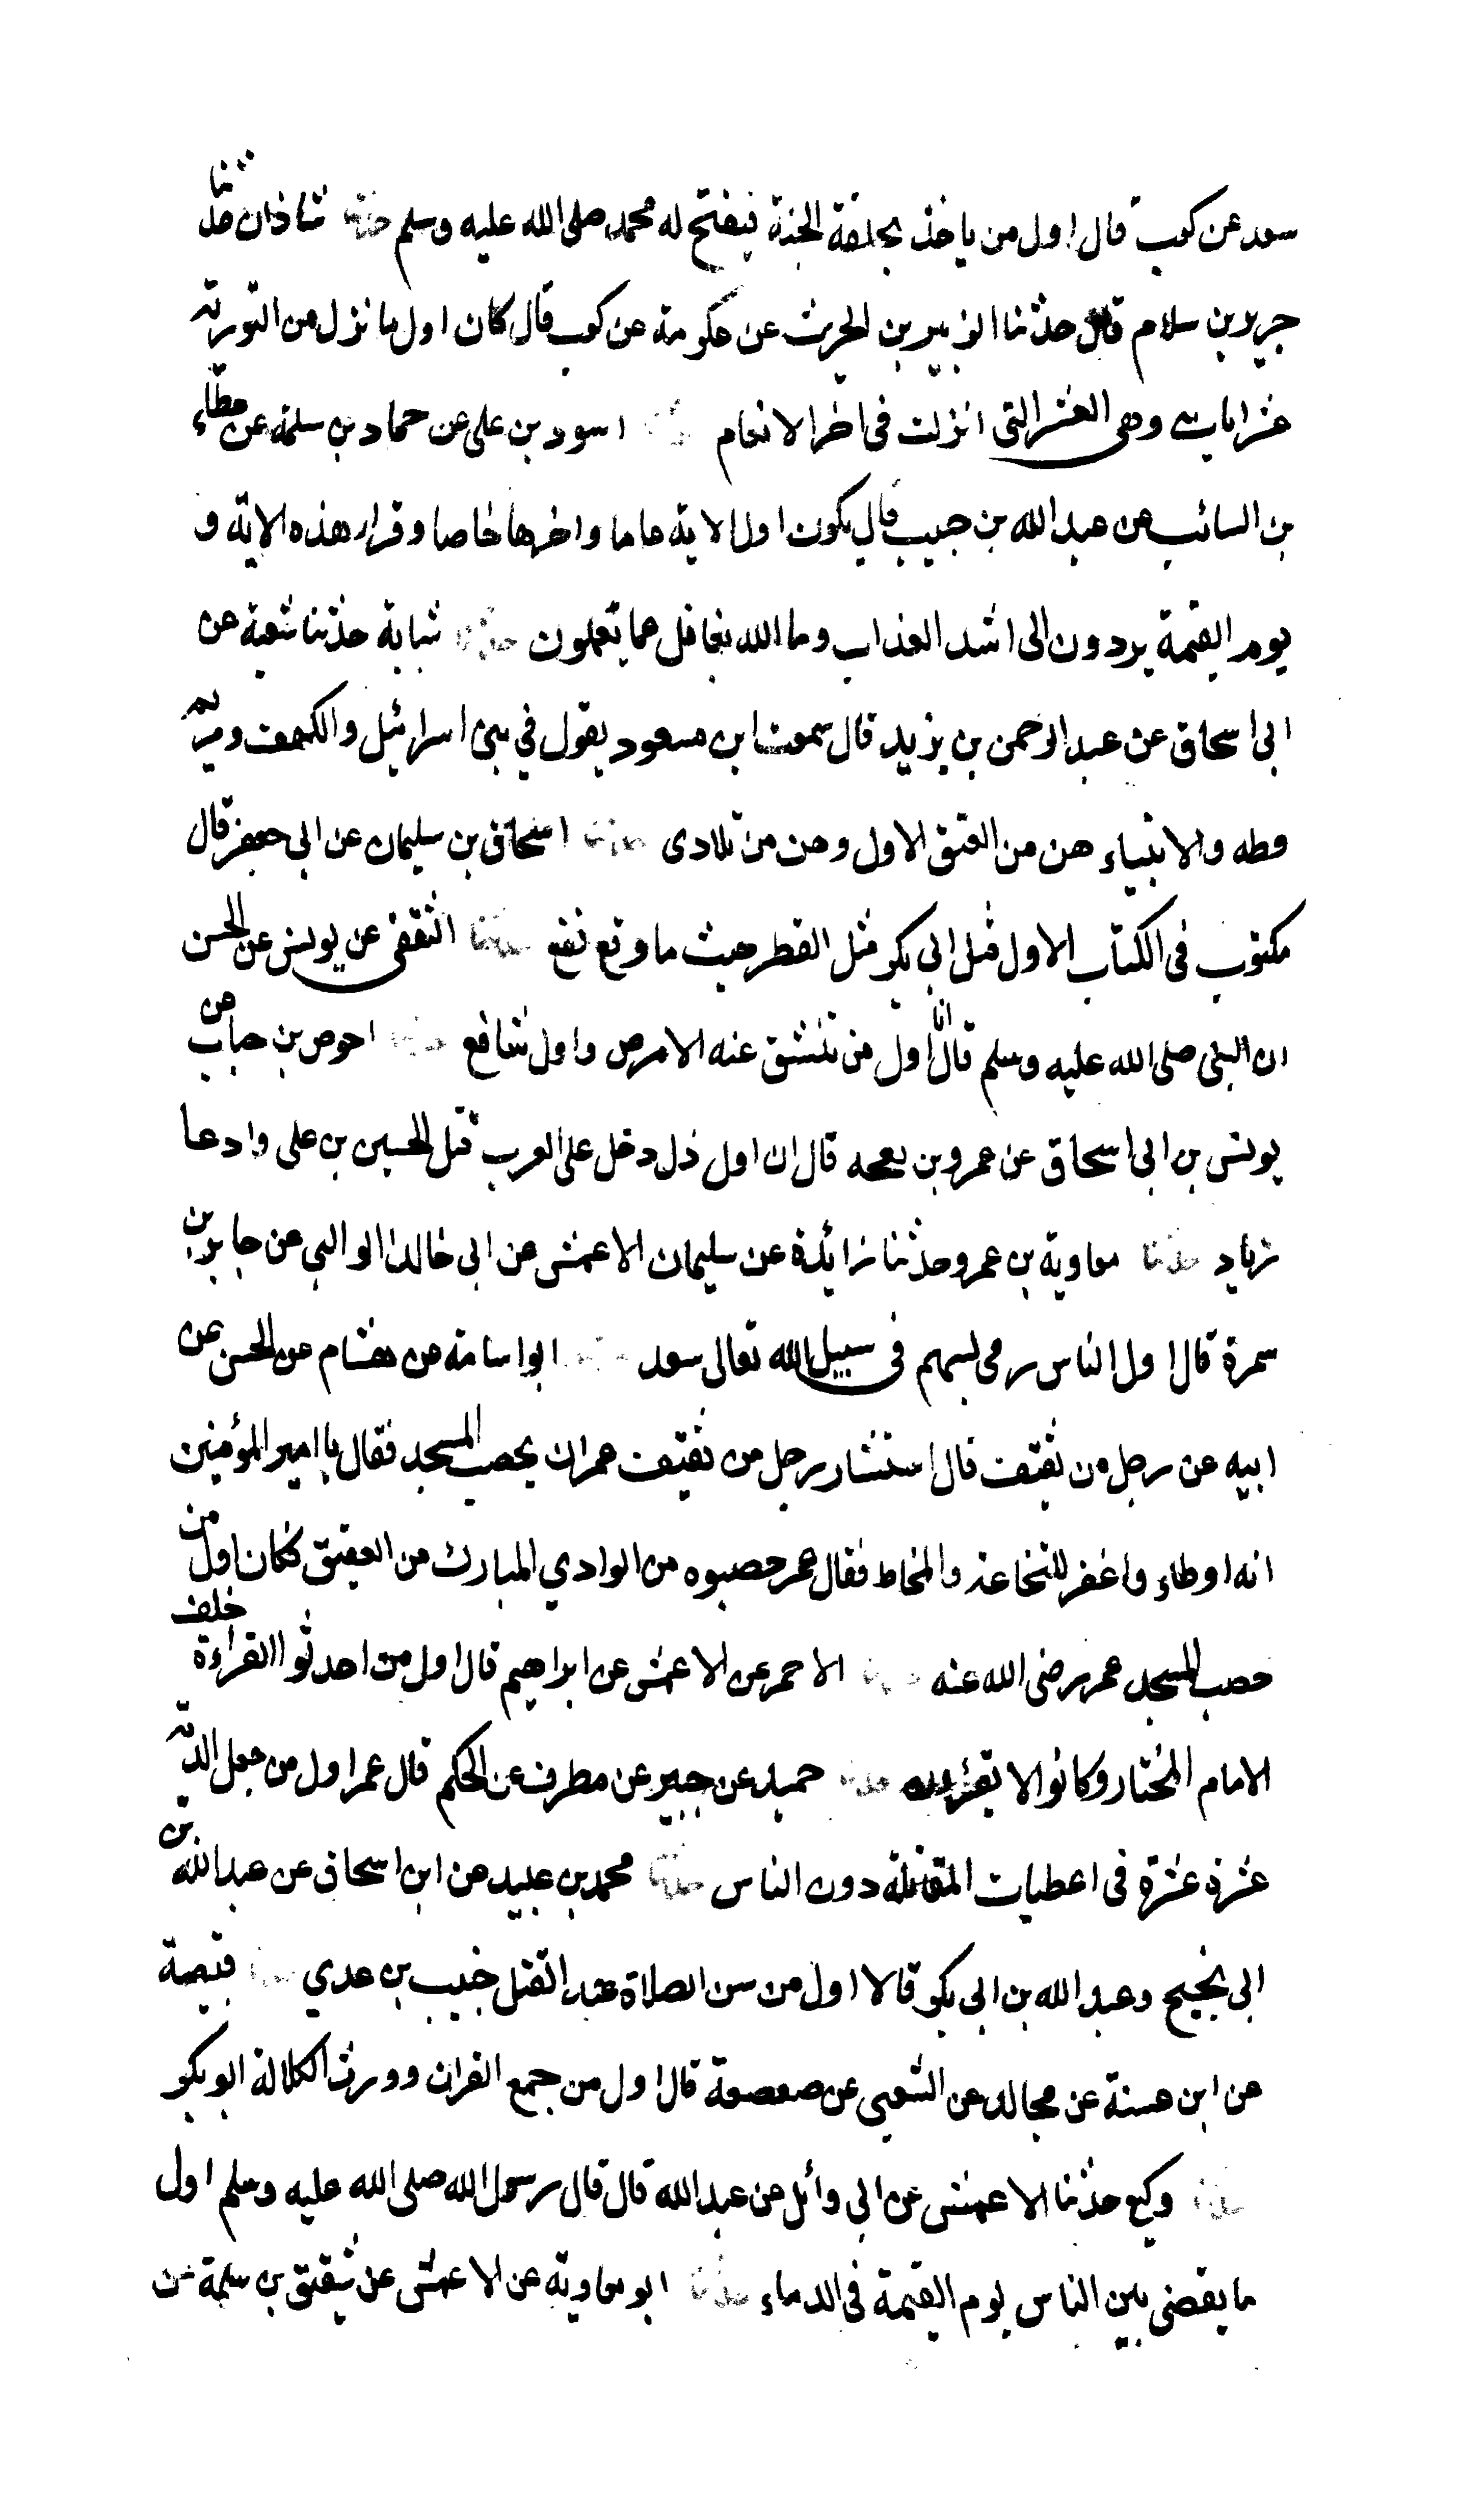 سعد عن كعب قال اول من ياخذ بحلقة الجنة فيفتح له محمد صلى الله عليه وسلم حدثنا شاذان حدثنا
جرير بن سلام قال حدثنا الزبير بن الحريث عن عكرمة عن كعب قال كان اول ما نزل من التورية
عشر ايات وهى العشر التى انزلت فى اخر الانعام حدثنا اسود بن على عن حماد بن سلمة عن عطاء
بن السائب عن عبد الله بن حبيب قال يكون اول الاية عاما واخرها خاصا وقراء هذه الاية و
يوم القيمة يردون الى اشد العذاب وما الله بغافل عما تعملون حدثنا شبابة حدثنا شعبة عن
ابى اسحاق عن عبد الرحمن بن يزيد قال سمعت ابن مسعود يقول فى بنى اسرائيل والكهف ومريم
وطه والانبياء هن من العتق الاول وهن من تلادى حدثنا اسحاق بن سليمان عن ابى جعفر قال
مكتوب فى الكتاب الاول مثل ابى بكر مثل القطر حيث ما وقع نفع حدثنا الثقفى عن يونس عن الحسن
ان النبى صلى الله عليه وسلم قال انا اول من تنشق عنه الارض واول شافع حدثنا احوص بن جباب عن
يونس بن ابى اسحاق عن عمرو بن بعجه قال ان اول ذل دخل على العرب قتل الحسين بن على وادعا
زياد حدثنا معاوية بن عمرو حدثنا زائدة عن سليمان الاعمش عن ابى خالد الوالبى عن جابر بن
سمرة قال اول الناس رمى بسهم فى سبيل الله تعالى سعد حدثنا ابو اسامة عن هشام عن الحسن عن
ابيه عن رجل من ثقيف قال استشار رجل من ثقيف عمر ان يحصب المسجد فقال يا امير المؤمنين
انه اوطاء واغفر للنخاعة والمخاط فقال عمر حصبوه من الوادي المبارك من العقيق فكان اول من
حصب المسجد عمر رضى الله عنه حدثنا الاحمر عن الاعمش عن ابراهيم قال اول من احدثوا القراءة خلف
الامام المختار وكانوا لا يقرؤن حدثنا حميد عن جبير عن مطرف عن الحكم قال عمر اول من جعل الدية
عشرة عشرة فى اعطيات المقاتلة دون الناس حدثنا محمد بن عبيد عن ابن اسحاق عن عبد الله بن
ابى نجيح وعبد الله بن ابى بكر قالا اول من سن الصلاة عند القتل خبيب بن عدي حدثنا قبيصة
عن ابن عيينة عن مجالد عن الشعبى عن صعصعة قال اول من جمع القران وورث الكلالة ابو بكر
حدثنا وكيع حدثنا الاعمش عن ابى وائل عن عبد الله قال قال رسول الله صلى الله عليه وسلم اول
ما يقضى بين الناس يوم القيمة فى الدماء حدثنا ابو معاوية عن الاعمش عن شقيق بن سلمة عن